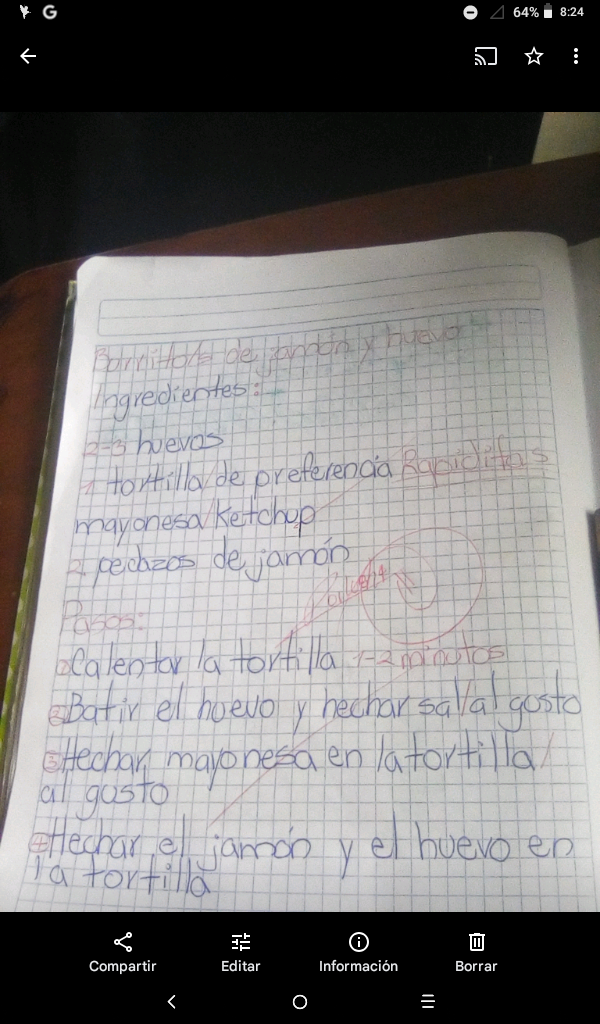 64% 8:24
Borrito/s de jamón y huevo
Ingredientes:
2-3 huevos
1 tortilla/de preferencia Rapiditas
mayonesa/Ketchup
2 pedazos de jamón
Pasos:
Calentar la tortilla 1-2 minutos
2 Batir el huevo y hechar sal/al gusto
3 Hechar mayonesa en la tortilla/
al gusto
4 Hechar el jamón y el huevo en
la tortilla
Compartir Editar Información Borrar